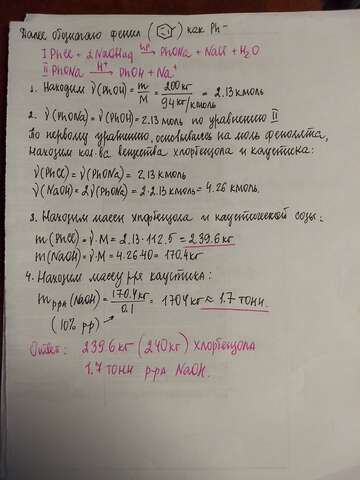 Далее обозначаю фенил ( ) как Ph-
I PhCl + 2NaOHaq t°P→ PhONa + NaCl + H₂O
II PhONa H⁺→ PhOH + Na⁺
1. Находим ν(PhOH) = m/M = 200 кг / 94 кг/кмоль = 2.13 кмоль
2. ν(PhONa) = ν(PhOH) = 2.13 моль по уравнению II
По первому уравнению, основываясь на моль фенолята,
находим кол-ва вещества хлорбензола и каустика:
ν(PhCl) = ν(PhONa) = 2.13 кмоль
ν(NaOH) = 2ν(PhONa) = 2·2.13 кмоль = 4.26 кмоль.
3. Находим массы хлорбензола и каустической соды:
m(PhCl) = ν·M = 2.13·112.5 = 239.6 кг
m(NaOH) = ν·M = 4.26·40 = 170.4 кг
4. Находим массу р-ра каустика:
mр-ра(NaOH) = 170.4 кг / 0.1 = 1704 кг ≈ 1.7 тонн.
(10% р-р)
Ответ: 239.6 кг (240 кг) хлорбензола
1.7 тонн р-ра NaOH.